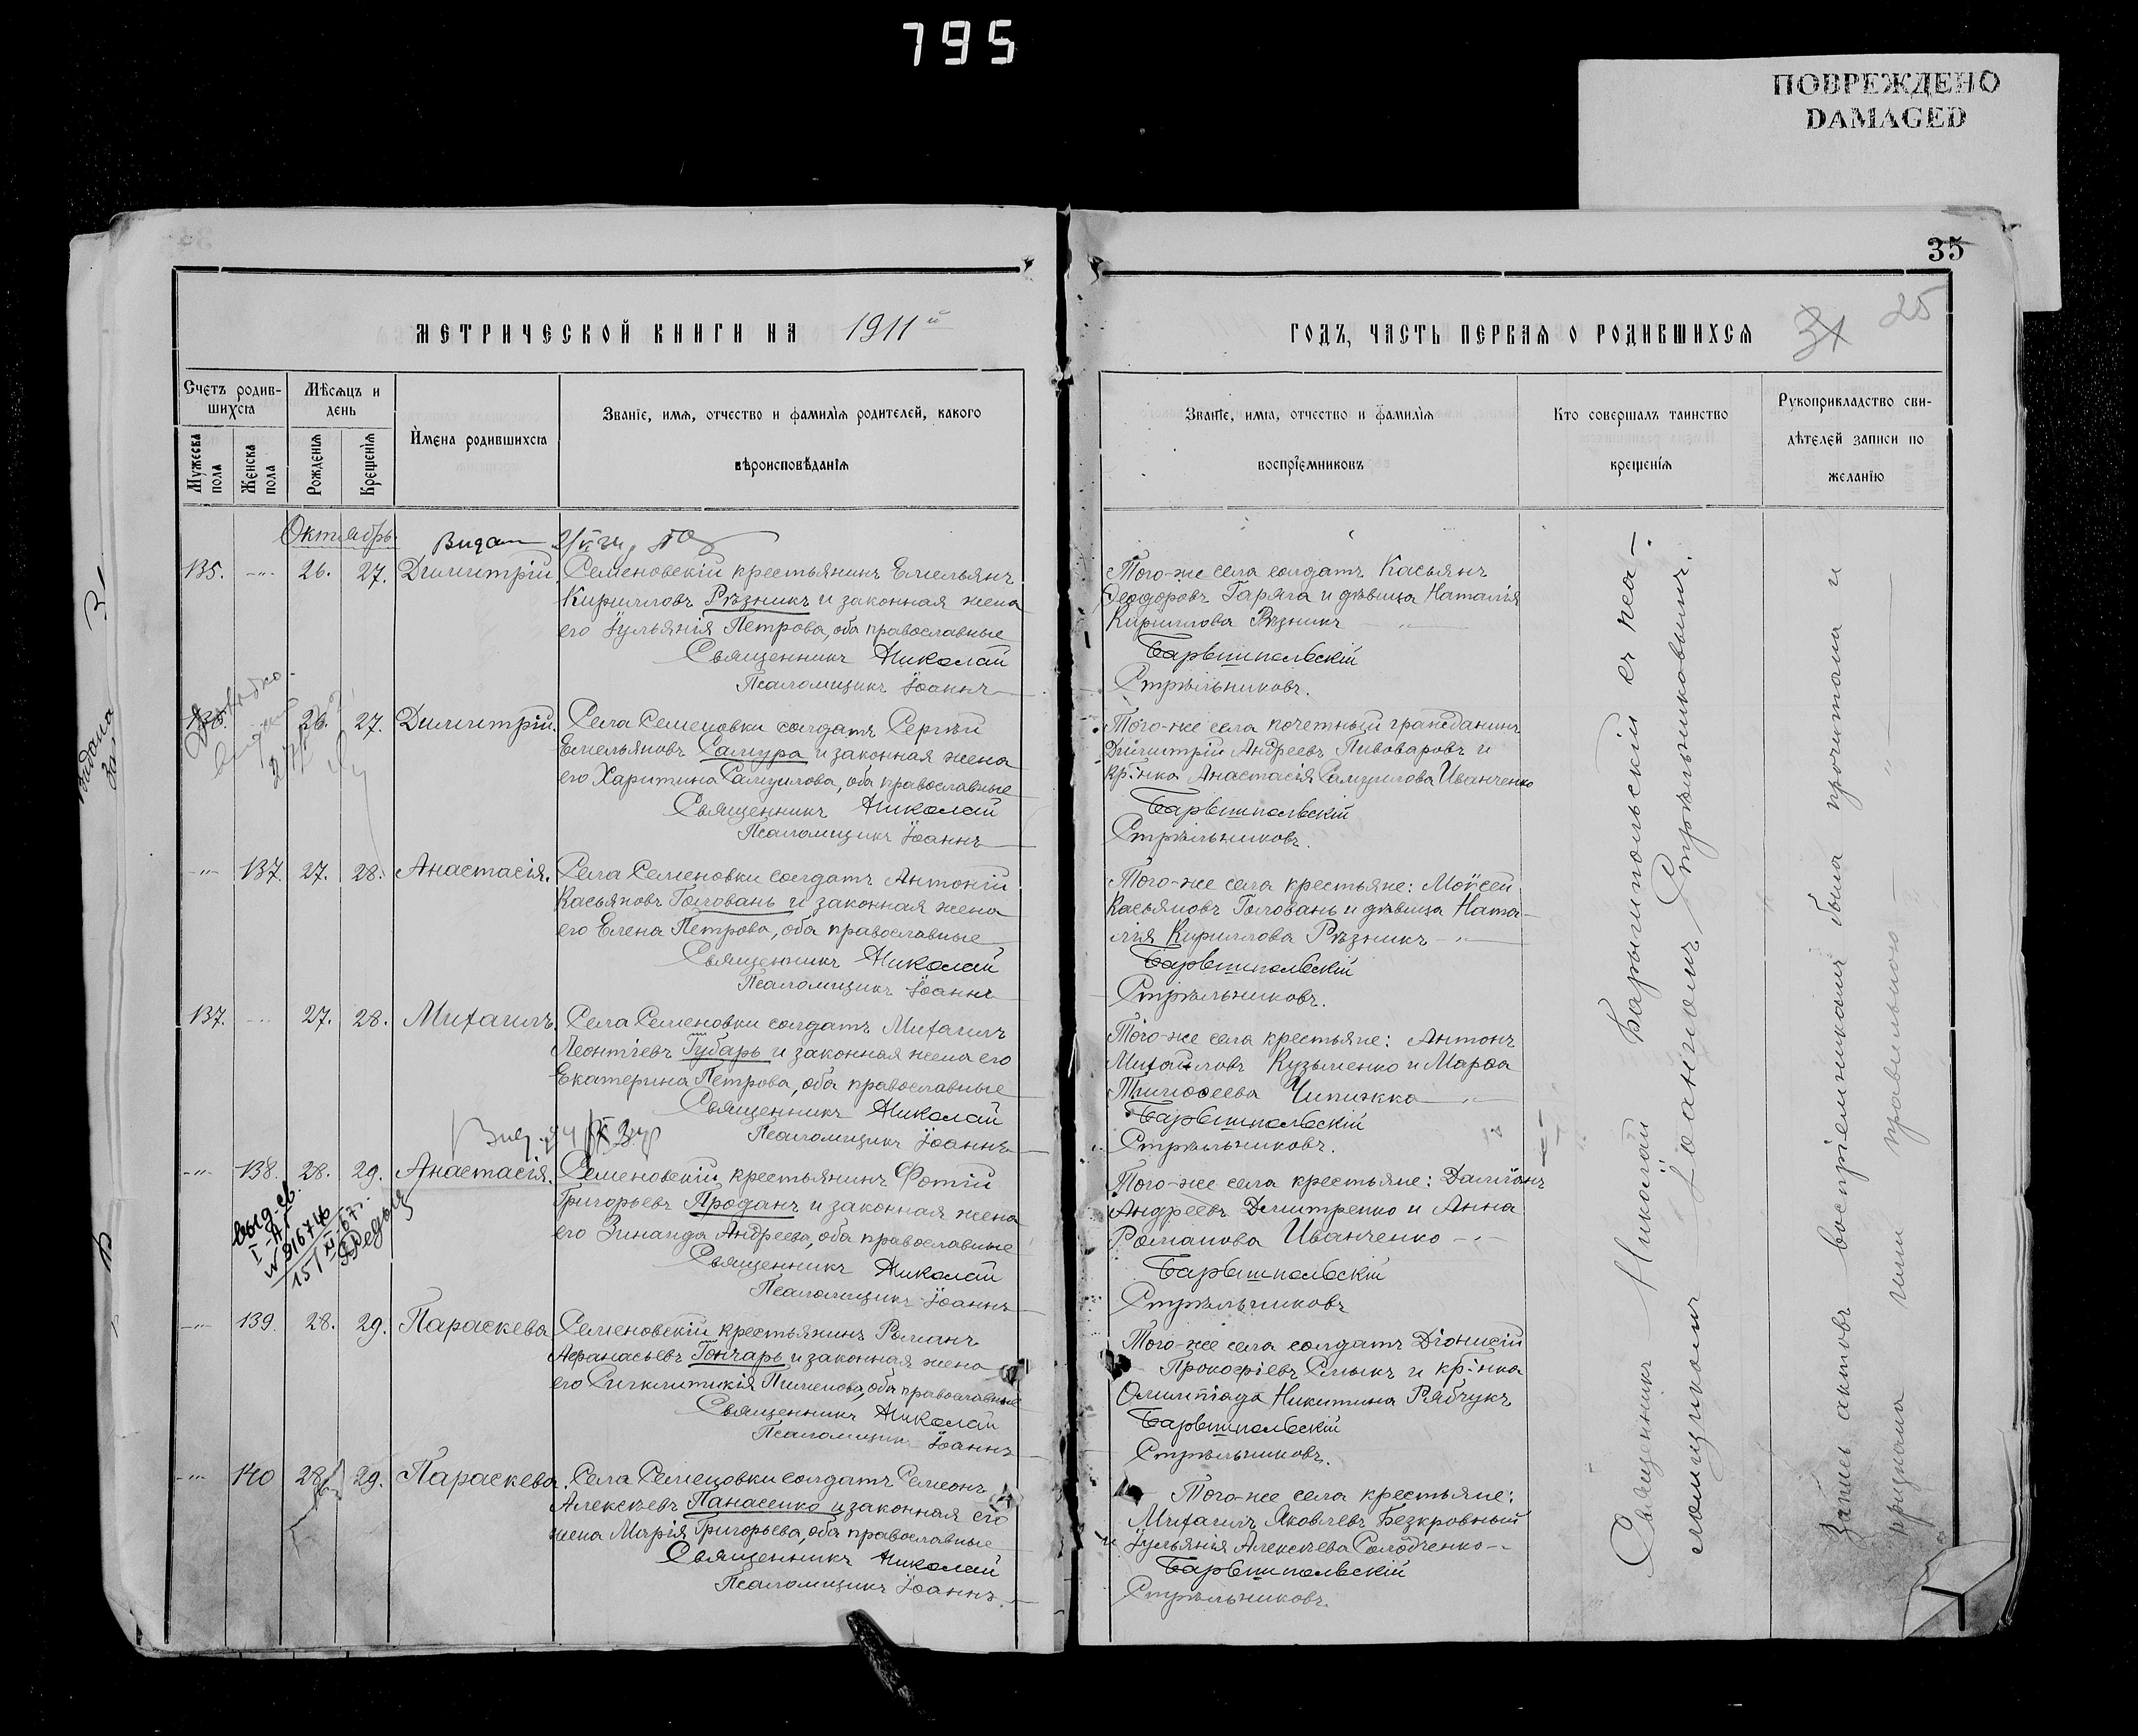 795
ПОВРЕЖДЕНО
DAMAGED
35
25
МЕТРИЧЕСКОЙ КНИГИ НА 1911й
ГОДЪ, ЧАСТЬ ПЕРВАЯ О РОДИВШИХСЯ
Счетъ родив-
шихся
Мужеска
пола
Женска
пола
Мѣсяцъ и
день
Рожденія
Крещенія
Имена родившихся
Званіе, имя, отчество и фамилія родителей, какого
вѣроисповѣданія
Званіе, имя, отчество и фамилія
воспріемниковъ
Кто совершалъ таинство
крещенія
Рукоприкладство сви-
дѣтелей записи по
желанію
Октябрь
135. -"- 26. 27. Димитрій. Семеновскій крестьянинъ Емельянъ
Кирилловъ Рѣзникъ и законная жена
его Іульянія Петрова, оба православные
Священникъ Николай
Псаломщикъ Іоаннъ
Того-же села солдатъ Касьянъ
Ѳеодоровъ Гаряга и дѣвица Наталія
Кириллова Рѣзникъ
Барышпольскій
Стрѣльниковъ.
136. 26. 27. Димитрій. Села Семеновки солдатъ Сергѣй
Емельяновъ Самура и законная жена
его Харитина Самуилова, оба православные
Священникъ Николай
Псаломщикъ Іоаннъ
Того-же села почетный гражданинъ
Димитрій Андреевъ Пивоваровъ и
кр:нка Анастасія Самуилова Иванченко
Барышпольскій
Стрѣльниковъ.
-"- 137. 27. 28. Анастасія. Села Семеновки солдатъ Антоній
Касьяновъ Головань и законная жена
его Елена Петрова, оба православные
Священникъ Николай
Псаломщикъ Іоаннъ
Того-же села крестьяне: Моѵсей
Касьяновъ Головань и дѣвица Ната-
лія Кириллова Рѣзникъ
Барышпольскій
Стрѣльниковъ.
137. -"- 27. 28. Михаилъ. Села Семеновки солдатъ Михаилъ
Леонтіевъ Губарь и законная жена его
Екатерина Петрова, оба православные
Священникъ Николай
Псаломщикъ Іоаннъ
Того-же села крестьяне: Антонъ
Михайловъ Кузьменко и Марѳа
Тимоѳеева Чипижко
Барышпольскій
Стрѣльниковъ.
-"- 138. 28. 29. Анастасія. Семеновскій крестьянинъ Фотій
Григорьевъ Проданъ и законная жена
его Зинаида Андреева, оба православные
Священникъ Николай
Псаломщикъ Іоаннъ
Того-же села крестьяне: Даміанъ
Андреевъ Дмитренко и Анна
Романова Иванченко
Барышпольскій
Стрѣльниковъ
-"- 139. 28. 29. Параскева Семеновскій крестьянинъ Романъ
Аѳанасьевъ Гончарь и законная жена
его Сигклитикія Пименова, оба православные
Священникъ Николай
Псаломщикъ Іоаннъ
Того-же села солдатъ Діонисій
Прокофіевъ Смыкъ и кр:нка
Олимпіада Никитина Рябчукъ
Барышпольскій
Стрѣльниковъ.
-"- 140 28. 29. Параскева. Села Семеновки солдатъ Семенъ
Алексѣевъ Панасенко и законная его
жена Марія Григорьева, оба православные
Священникъ Николай
Псаломщикъ Іоаннъ.
Того-же села крестьяне:
Михаилъ Яковлевъ Безкровный
и Іульянія Алексѣева Солодченко
Барышпольскій
Стрѣльниковъ.
Священникъ Николай Барышпольскій съ пса-
ломщикомъ Іоанномъ Стрѣльниковымъ.
Запись актовъ воспріемникамъ была прочитана и
признана ими правильною